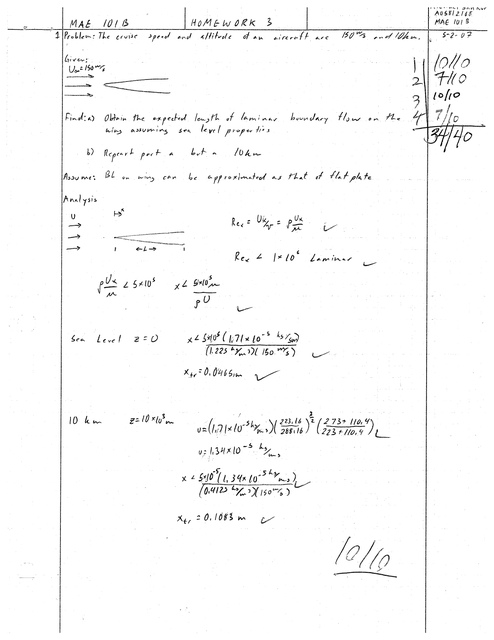 MAE 101B HOMEWORK 3
AOSBI2188
MAE 101B
5-2-07
1 Problem: The cruise speed and altitude of an aircraft are 150 m/s and 10km.
1 10/10
2 7/10
3 10/10
4 7/10
34/40
Given:
U∞=150 m/s
Find: a) Obtain the expected length of laminar boundary flow on the
wing assuming sea level properties
b) Repeat part a but a 10km
Assume: BL on wing can be approximated as that of flat plate
Analysis
U
x
L
Rex = Ux/ν = ρUx/μ
Rex < 1×10⁶ Laminar
ρUx/μ < 5×10⁵ x < 5×10⁵μ/ρU
Sea Level z=0 x < 5×10⁵(1.71×10⁻⁵ kg/sm)/(1.225 kg/m³)(150 m/s)
xtr = 0.0465m
10 km z=10×10³m u=(1.71×10⁻⁵ kg/ms)(223.16/288.16)^3/2 (273+110.4/223+110.4)
u=1.34×10⁻⁵ kg/ms
x < 5×10⁻⁵(1.34×10⁻⁵ kg/ms)/(0.4125 kg/m³)(150 m/s)
xtr = 0.1083 m
10/10